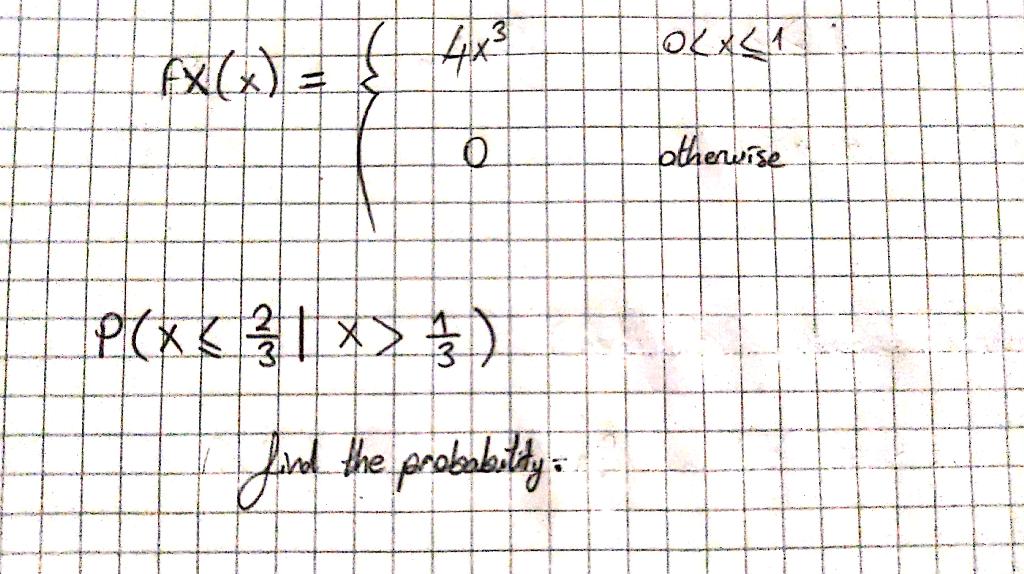 fX(x) = { 4x³ 0<x≤1
0 otherwise
P(x ≤ 2/3 | x > 1/3)
find the probability.